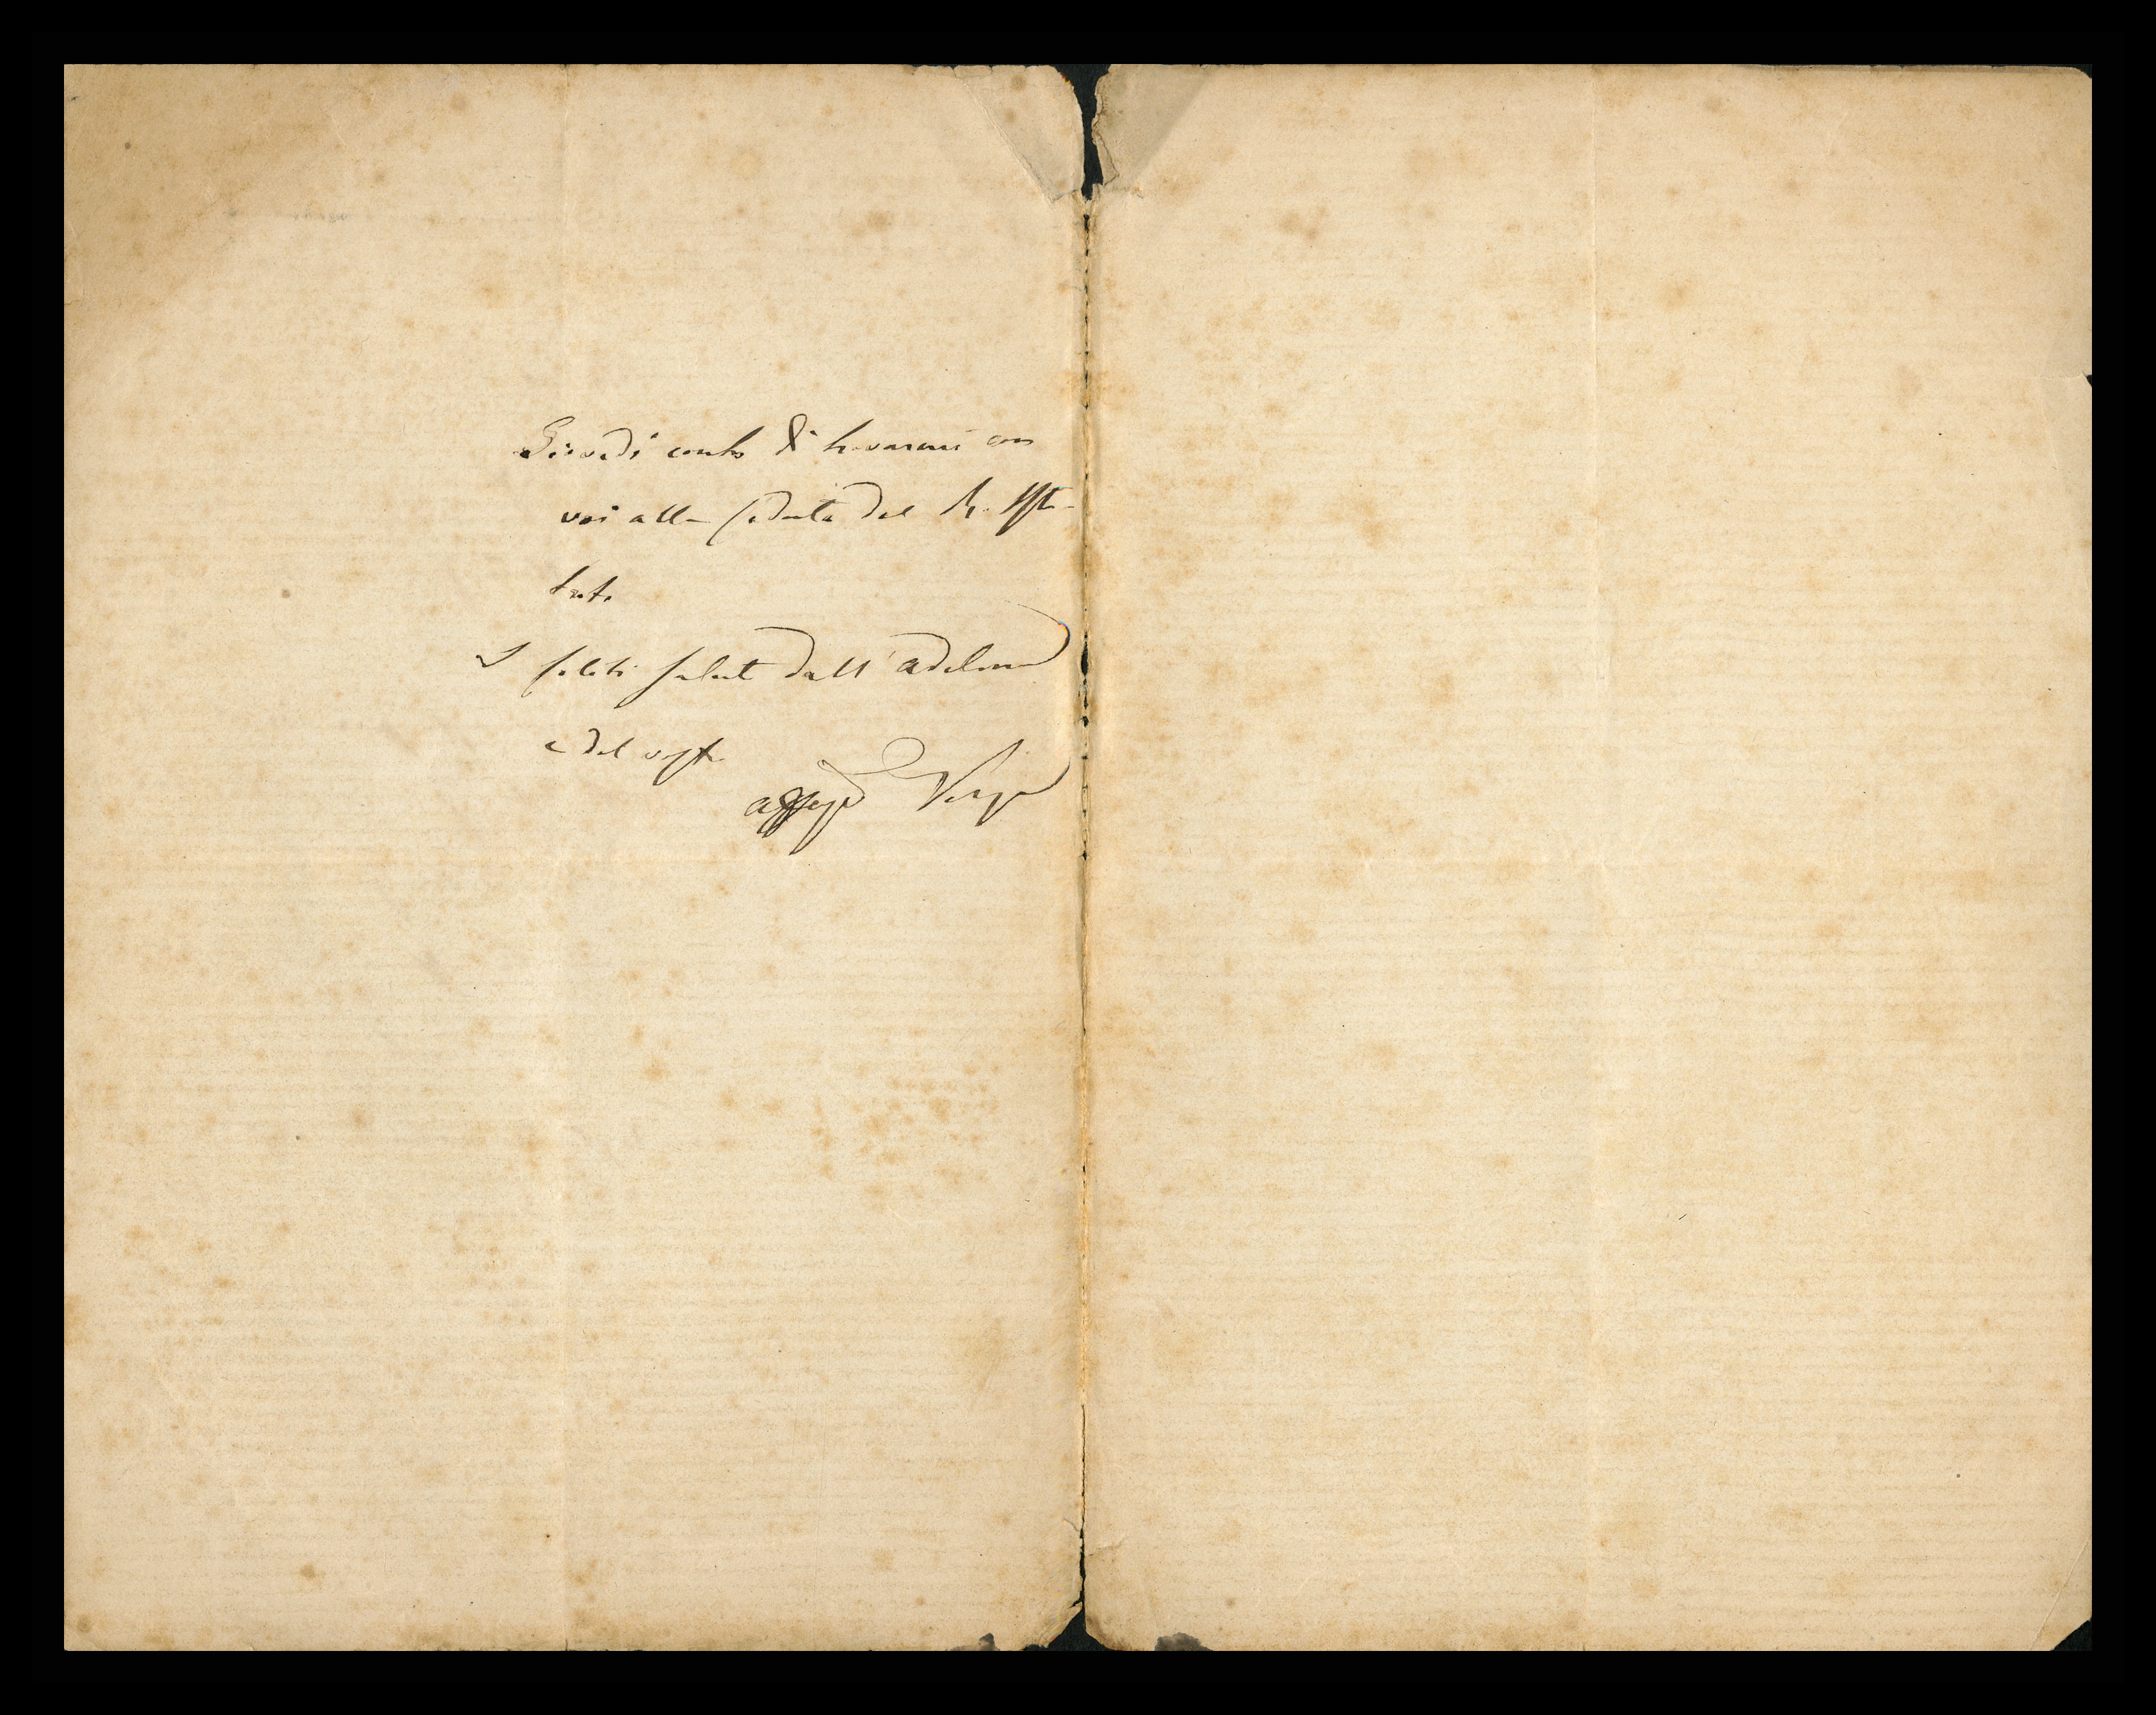 Giovedì conto di trovarmi con
voi alla seduta del R. Isti-
tuto
I soliti saluti dall'Adelina
e del vostro
affez Verga